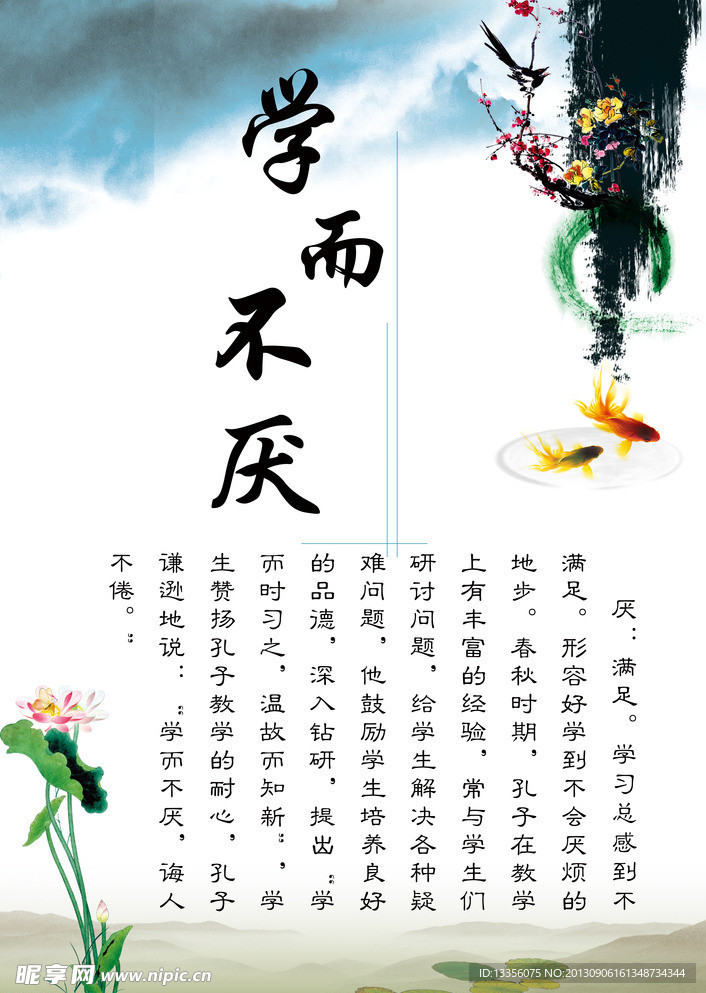 学而不厌
厌：满足。学习总感到不
满足。形容好学到不会厌烦的
地步。春秋时期，孔子在教学
上有丰富的经验，常与学生们
研讨问题，给学生解决各种疑
难问题，他鼓励学生培养良好
的品德，深入钻研，提出“学
而时习之，温故而知新”，学
生赞扬孔子教学的耐心，孔子
谦逊地说：“学而不厌，诲人
不倦。”
昵享网 www.nipic.cn
ID:13356075 NO:20130906161348734344